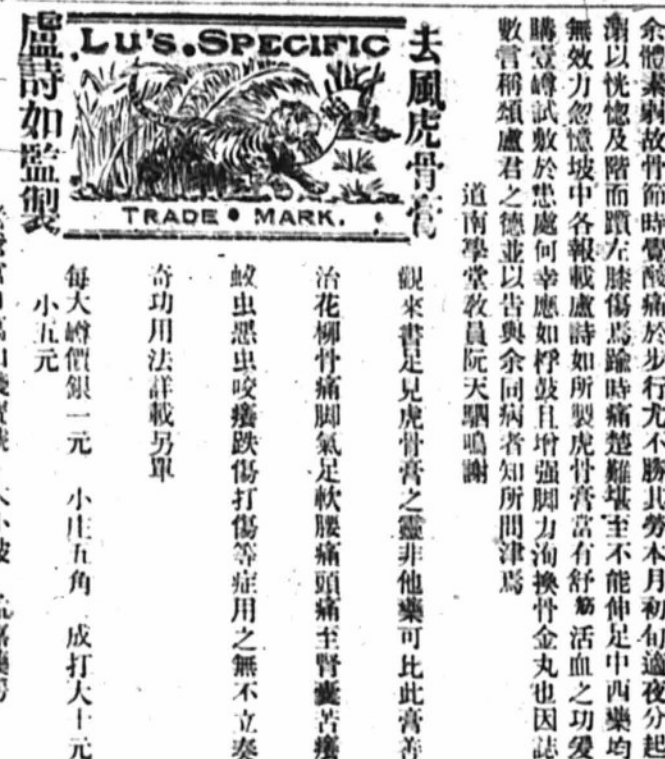 余體素弱故骨節時覺酸痛於步行尤不勝其勞本月初旬適夜分起
溺以恍惚及階而躓左膝傷焉踰時痛楚難堪至不能伸足中西藥均
無效力忽憶坡中各報載盧詩如所製虎骨膏當有舒筋活血之功爰
購壹罇試敷於患處何幸應如桴鼓且增强脚力洵換骨金丸也因誌
數言稱頌盧君之德並以告與余同病者知所問津焉
道南學堂教員阮天駟鳴謝
去風虎骨膏
LU'S. SPECIFIC
TRADE • MARK.
盧詩如監製
觀來書足見虎骨膏之靈非他藥可比此膏善
治花柳骨痛脚氣足軟腰痛頭痛至腎囊苦癢
蚊虫惡虫咬癢跌傷打傷等症用之無不立奏
奇功用法詳載另單
每大罇價銀一元 小庄五角 成打大十元
小五元